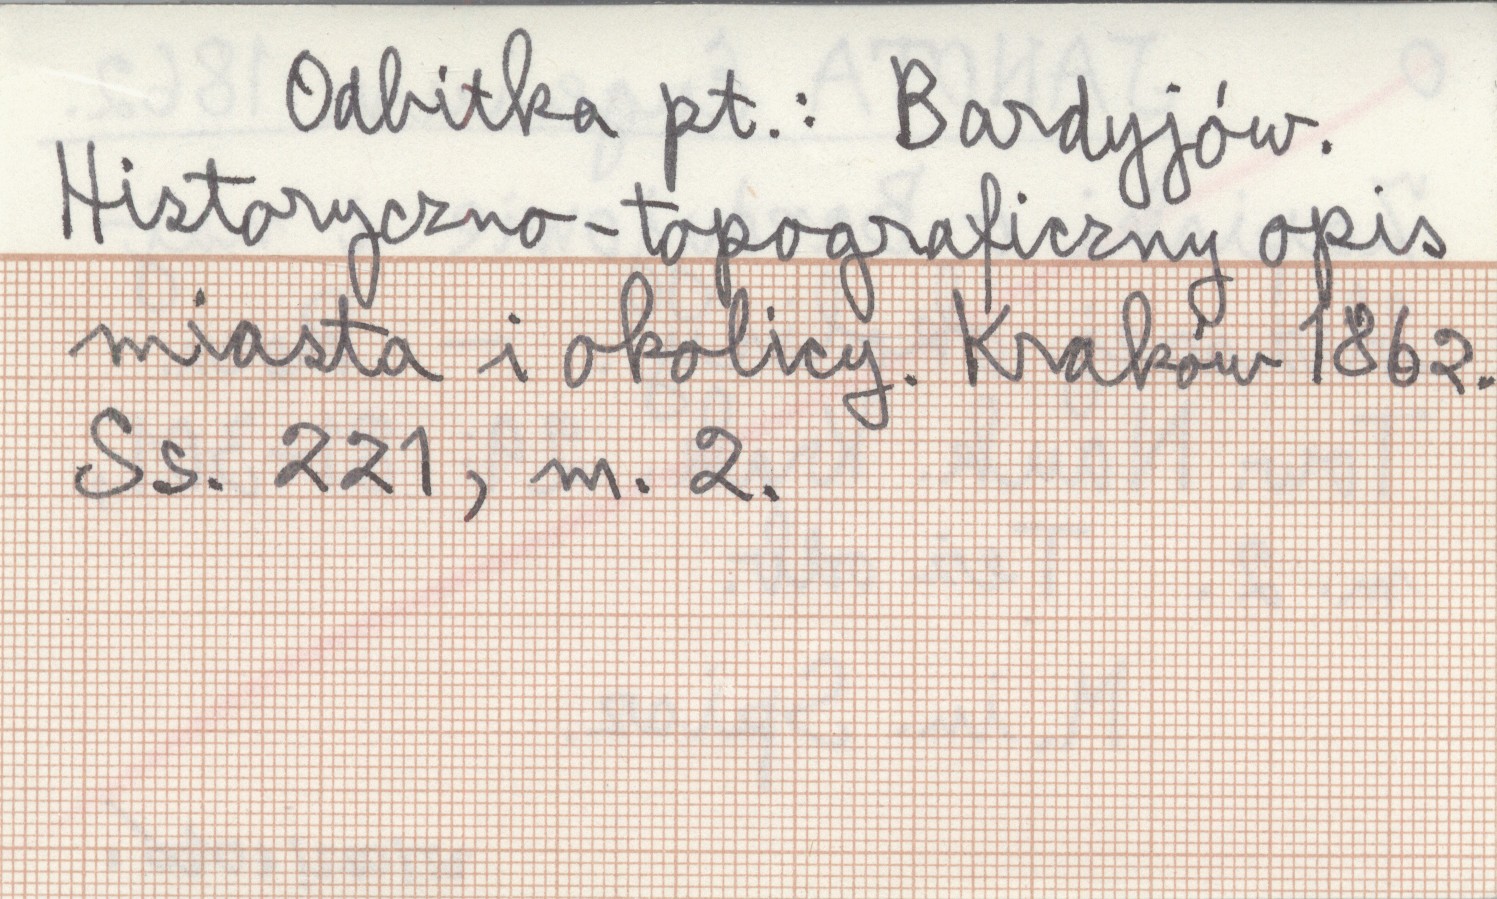 Odbitka pt.: Bardyjów.
Historyczno-topograficzny opis
miasta i okolicy. Kraków 1862.
Ss. 221, m. 2.